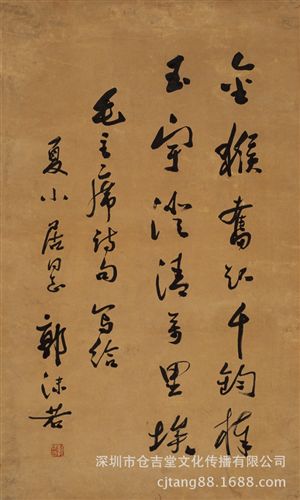 金猴奋起千钧棒
玉宇澄清万里埃
毛主席诗句 写给
夏小居同志 郭沫若
深圳市仓吉堂文化传播有限公司
cjtang88.1688.com